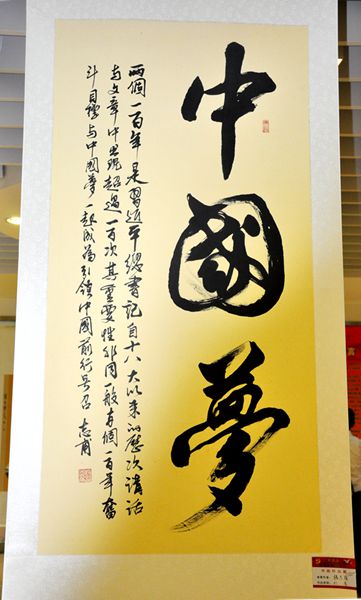 中國夢
兩個一百年是習近平總書記自十八大以来的歷次講話
与文章中出現超過一百次其重要性非同一般有個一百年奮
斗目標与中國夢一起成為引領中國前行号召 志甫